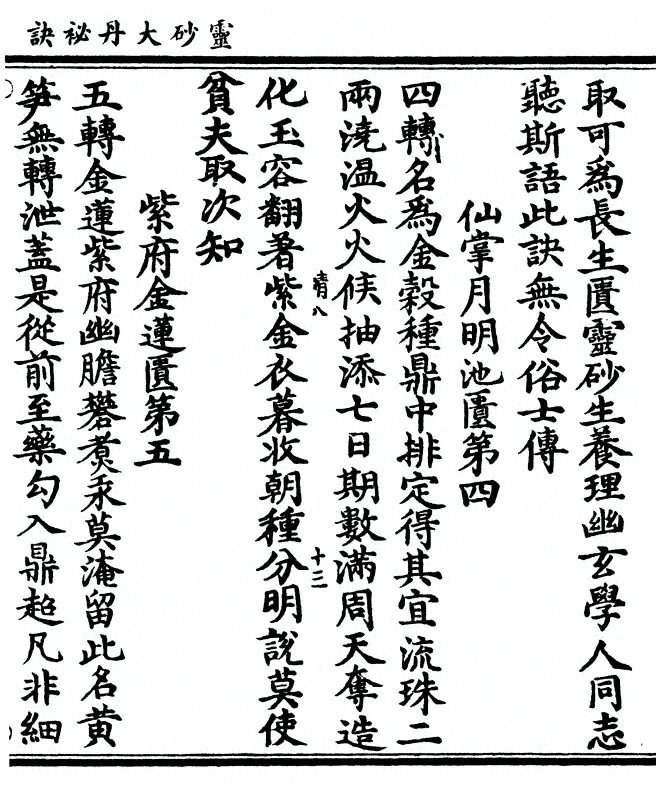 靈砂大丹祕訣
取可為長生匱靈砂生養理幽玄學人同志
聽斯語此訣無令俗士傳
仙掌月明池匱第四
四轉名為金穀種鼎中排定得其宜流珠二
兩澆溫火火候抽添七日期數滿周天奪造
化玉容翻著紫金衣暮收朝種分明說莫使
情八
十三
貧夫取次知
紫府金蓮匱第五
五轉金蓮紫府幽膽礬煑汞莫淹留此名黄
笋無轉泄蓋是從前至藥勾入鼎超凡非細